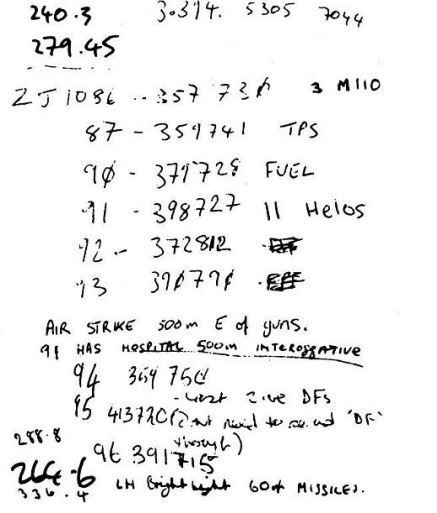 240.3 3.394. 5305 7044
279.45
ZJ1086 -- 357 73Ø 3 M110
87 - 359741 TPS
9Ø - 379728 FUEL
91 - 398727 11 Helos
92 -- 372812
93 39Ø79Ø
AIR STRIKE 500m E of guns.
91 HAS HOSPITAL 500m INTEROGGATIVE
94 359 750
DFs
95 'DF'
288.8 through)
96 391715
264.6
336.4 LH bright light 60ft MISSILES.